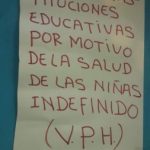 TITUCIONES
EDUCATIVAS
POR MOTIVO
DE LA SALUD
DE LAS NIÑAS
INDEFINIDO
(V.P.H.)